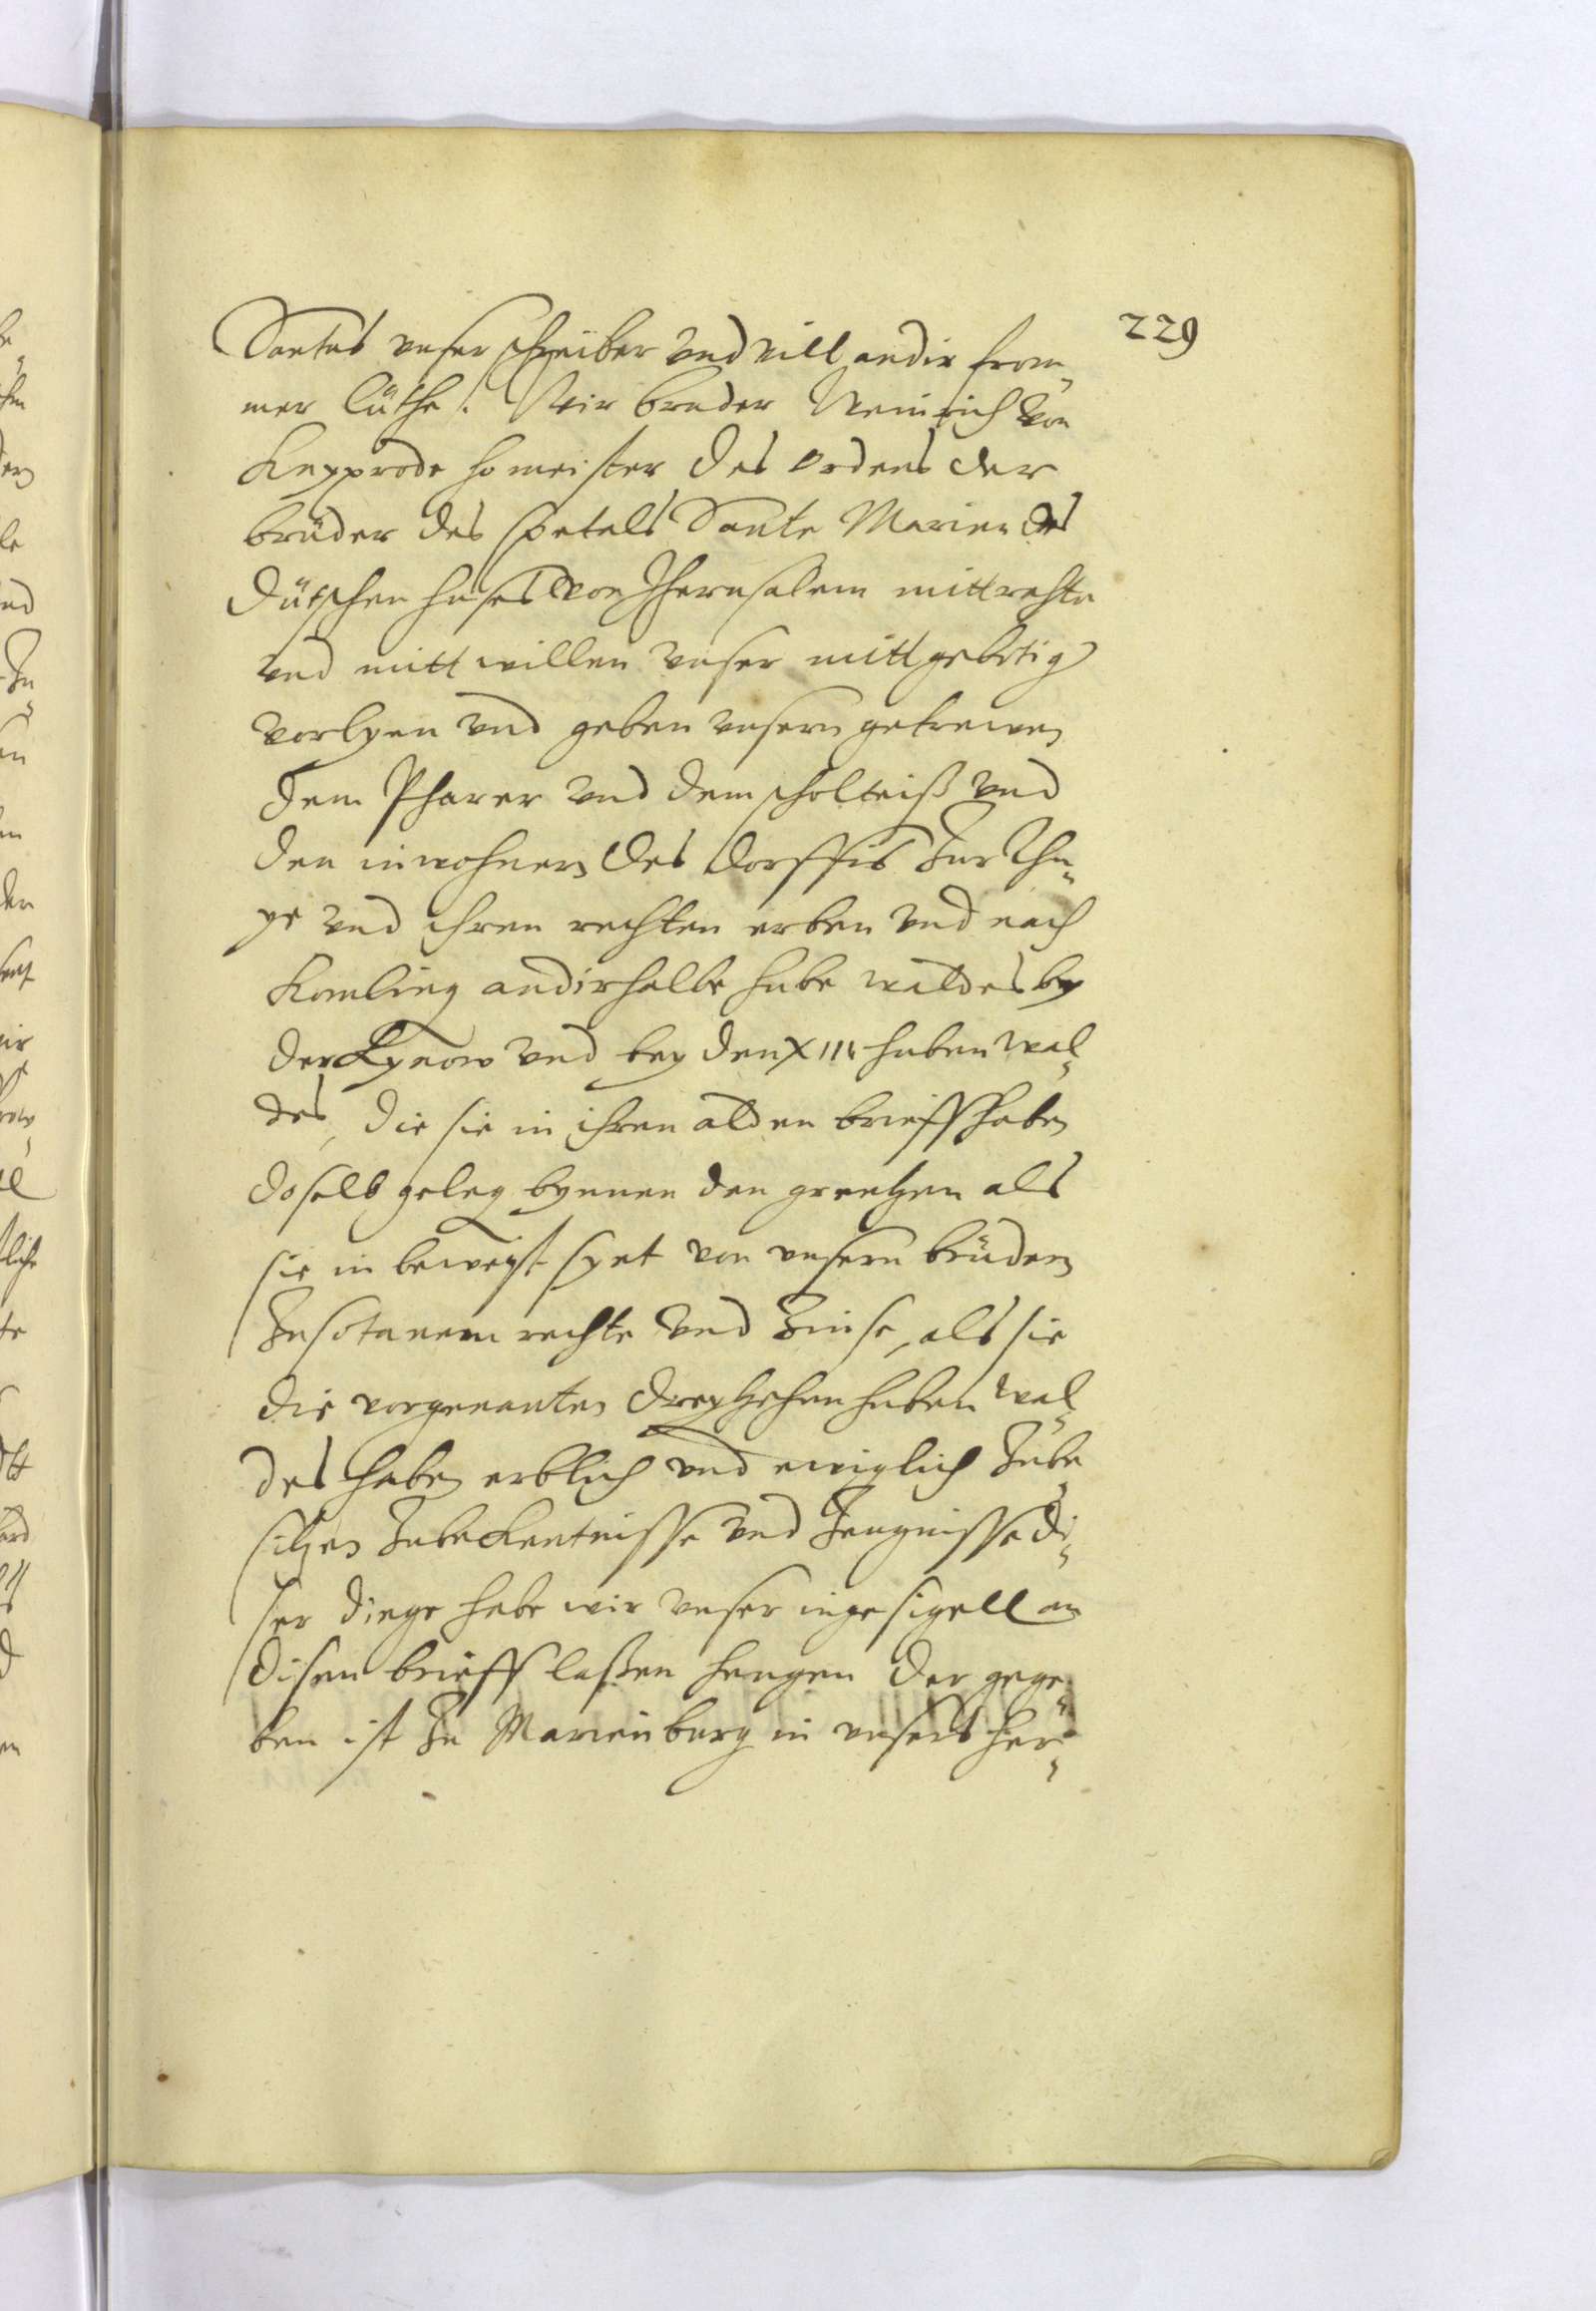 229
Santus unser schreiber und vill andir from¬
mer lüthe. Wir bruder Weinrich von
Knyprode homeister des ordens der
brüder des spetals Sante Marien des
dütschen huses von Jherusalem mitt rathe
und mitt willen unser mittgebitig
vorlyen und geben unsern getrewen
dem Pharer und dem scholteiß und
den inwohnern des dorffis Zur Thy¬
ge und ihren rechten erben und nach
komling andirhalbe hube waldes by
der Lynow und bey den XIII huben wal¬
des, die sie in ihren alden brieff haben
doselb geleg bynnen den grentzen als
sie in beweyst synt von unsern brüdern
Zusotanem rechte und Zinse, als sie
die vorgenanten dreytzehen huben wal¬
des haben erblich und ewiglich Zube¬
sitzen Zubekentnisse und Zeugnisse di¬
ser dinge habe wir unser ingesigell an
disen brieff laßen hengen der gege¬
ben ist Zu Marienburg in unsers her¬